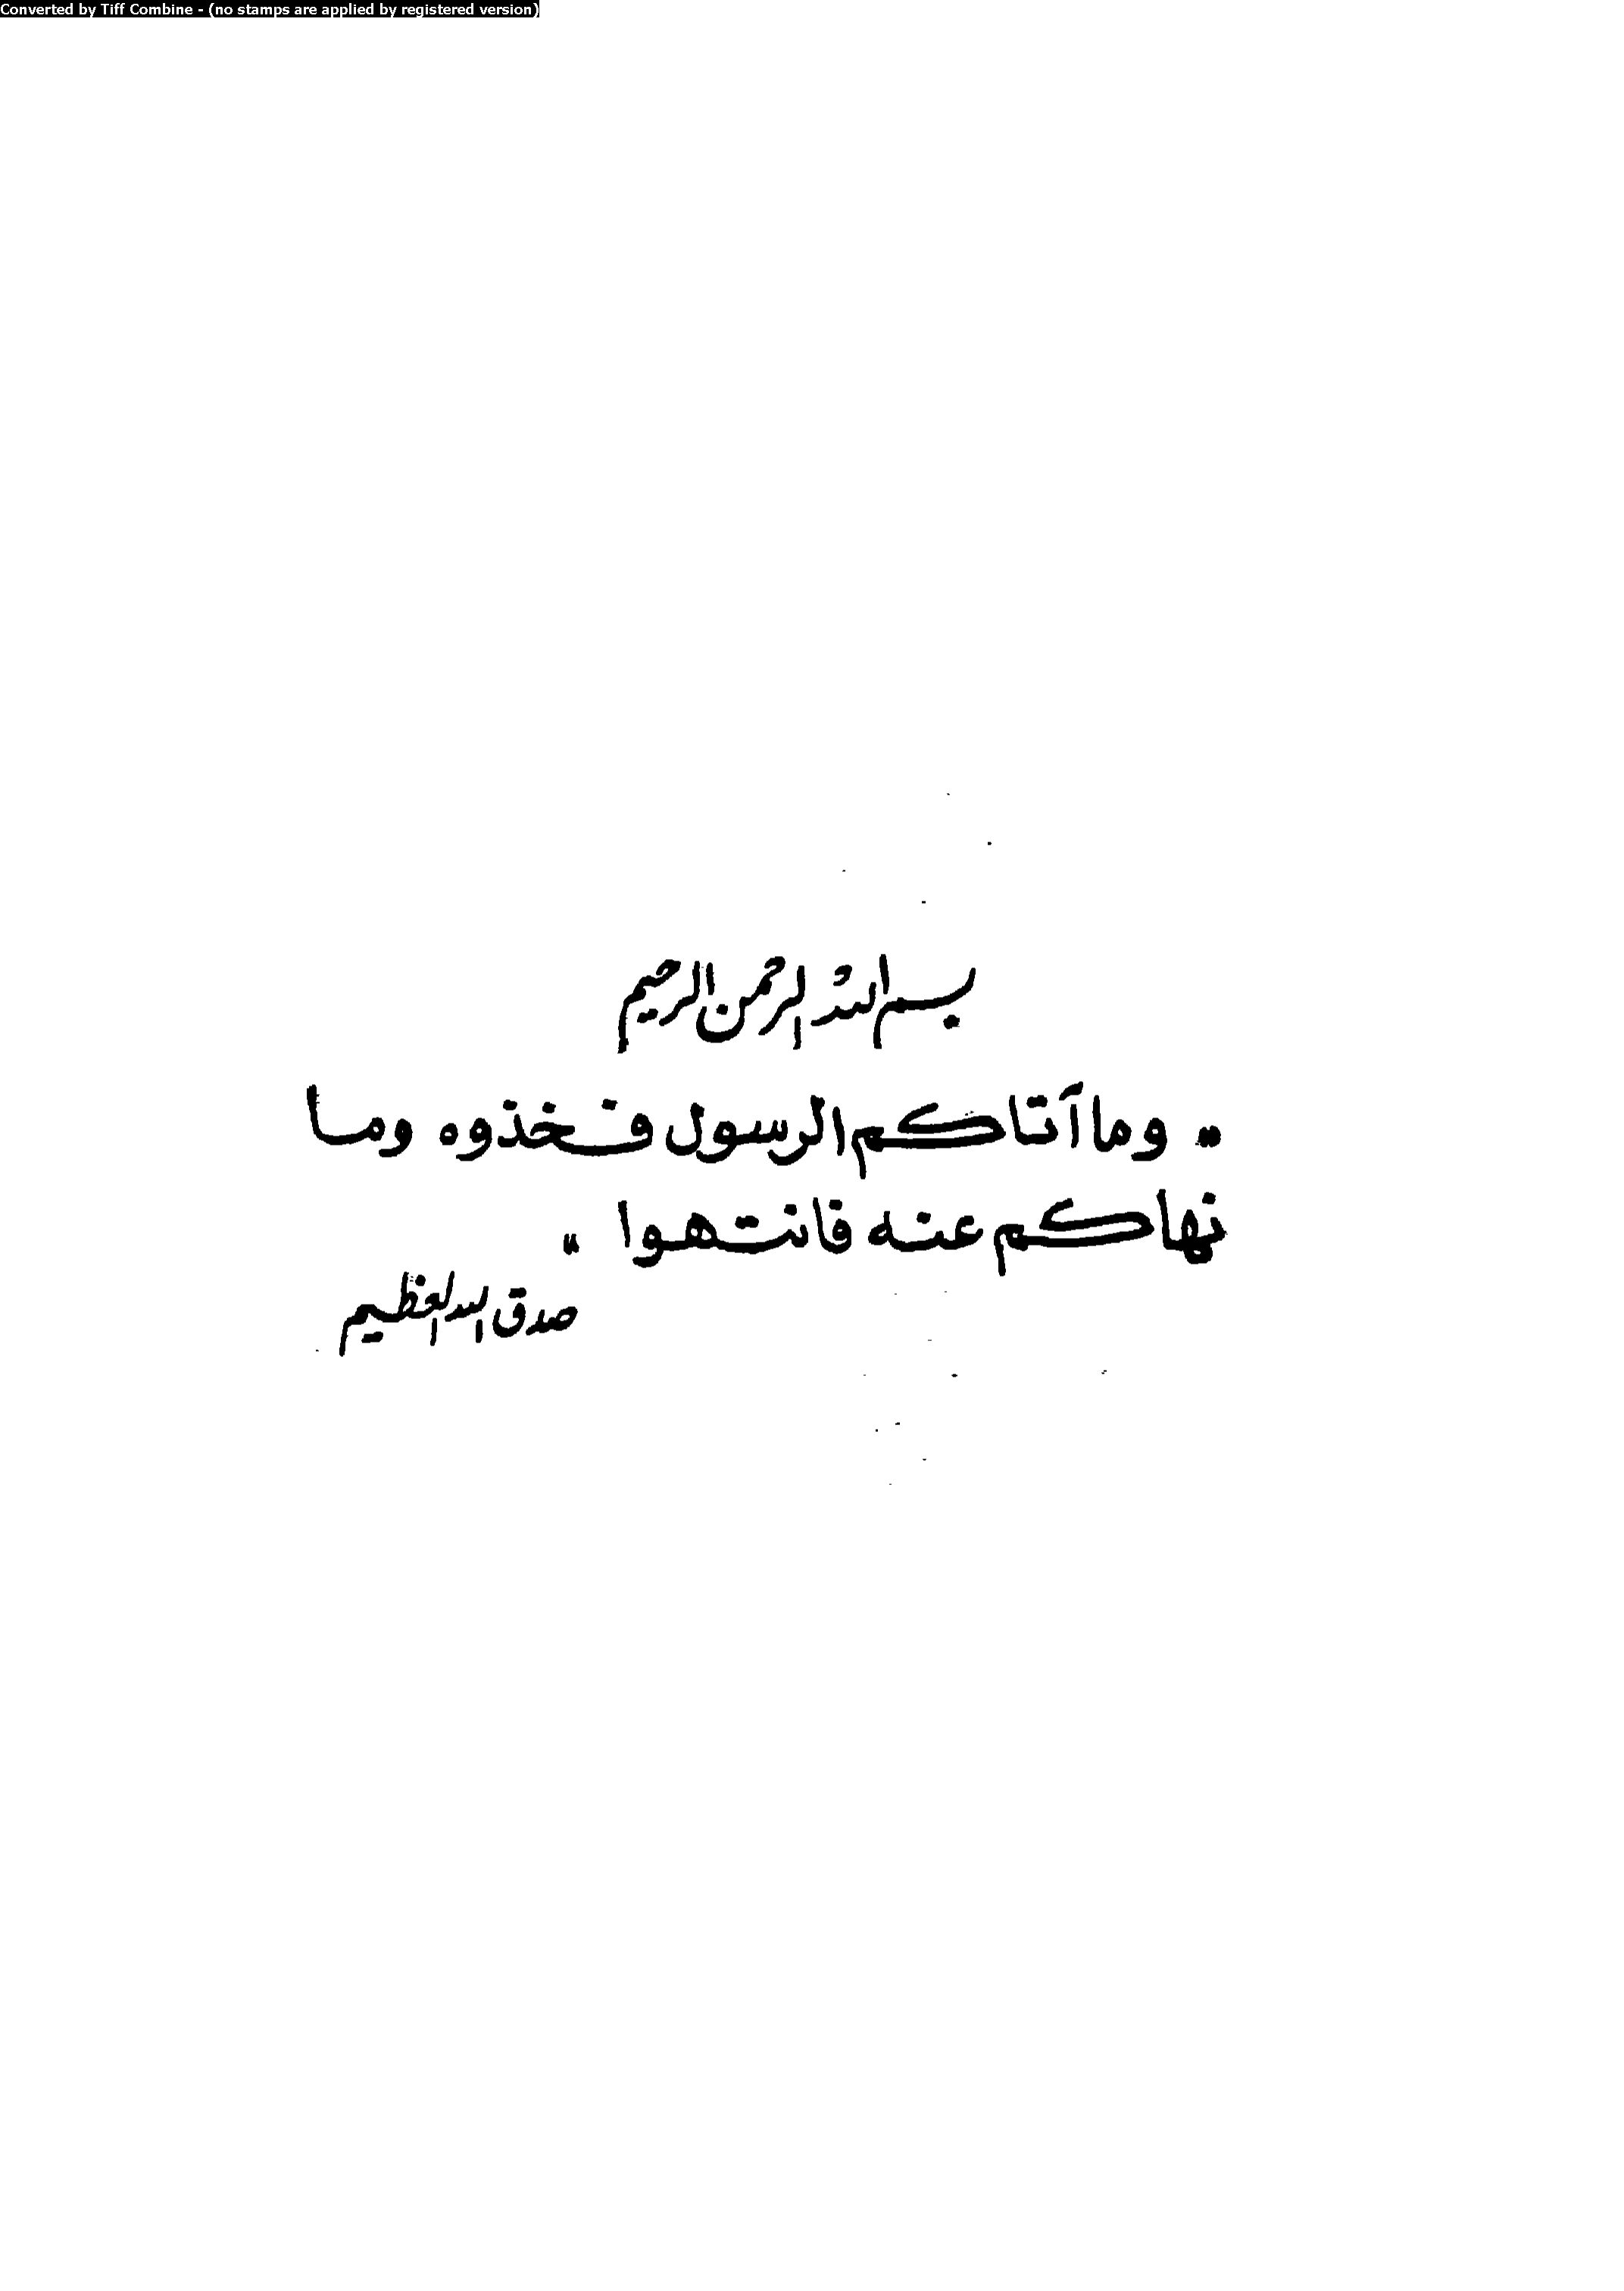 Converted by Tiff Combine - (no stamps are applied by registered version)
بسم الله الرحمن الرحيم
" وما آتاكم الرسول فخذوه وما
نهاكم عنه فانتهوا "
صدق الله العظيم